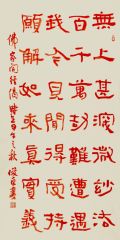 無上甚深微妙法
百千萬劫難遭遇
我今見聞得受持
願解如來真實義
佛家開經偈